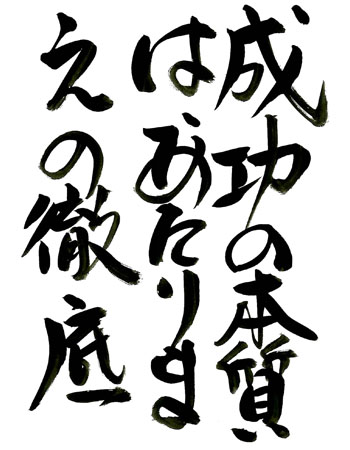 成功の本質
はあたりま
えの徹底